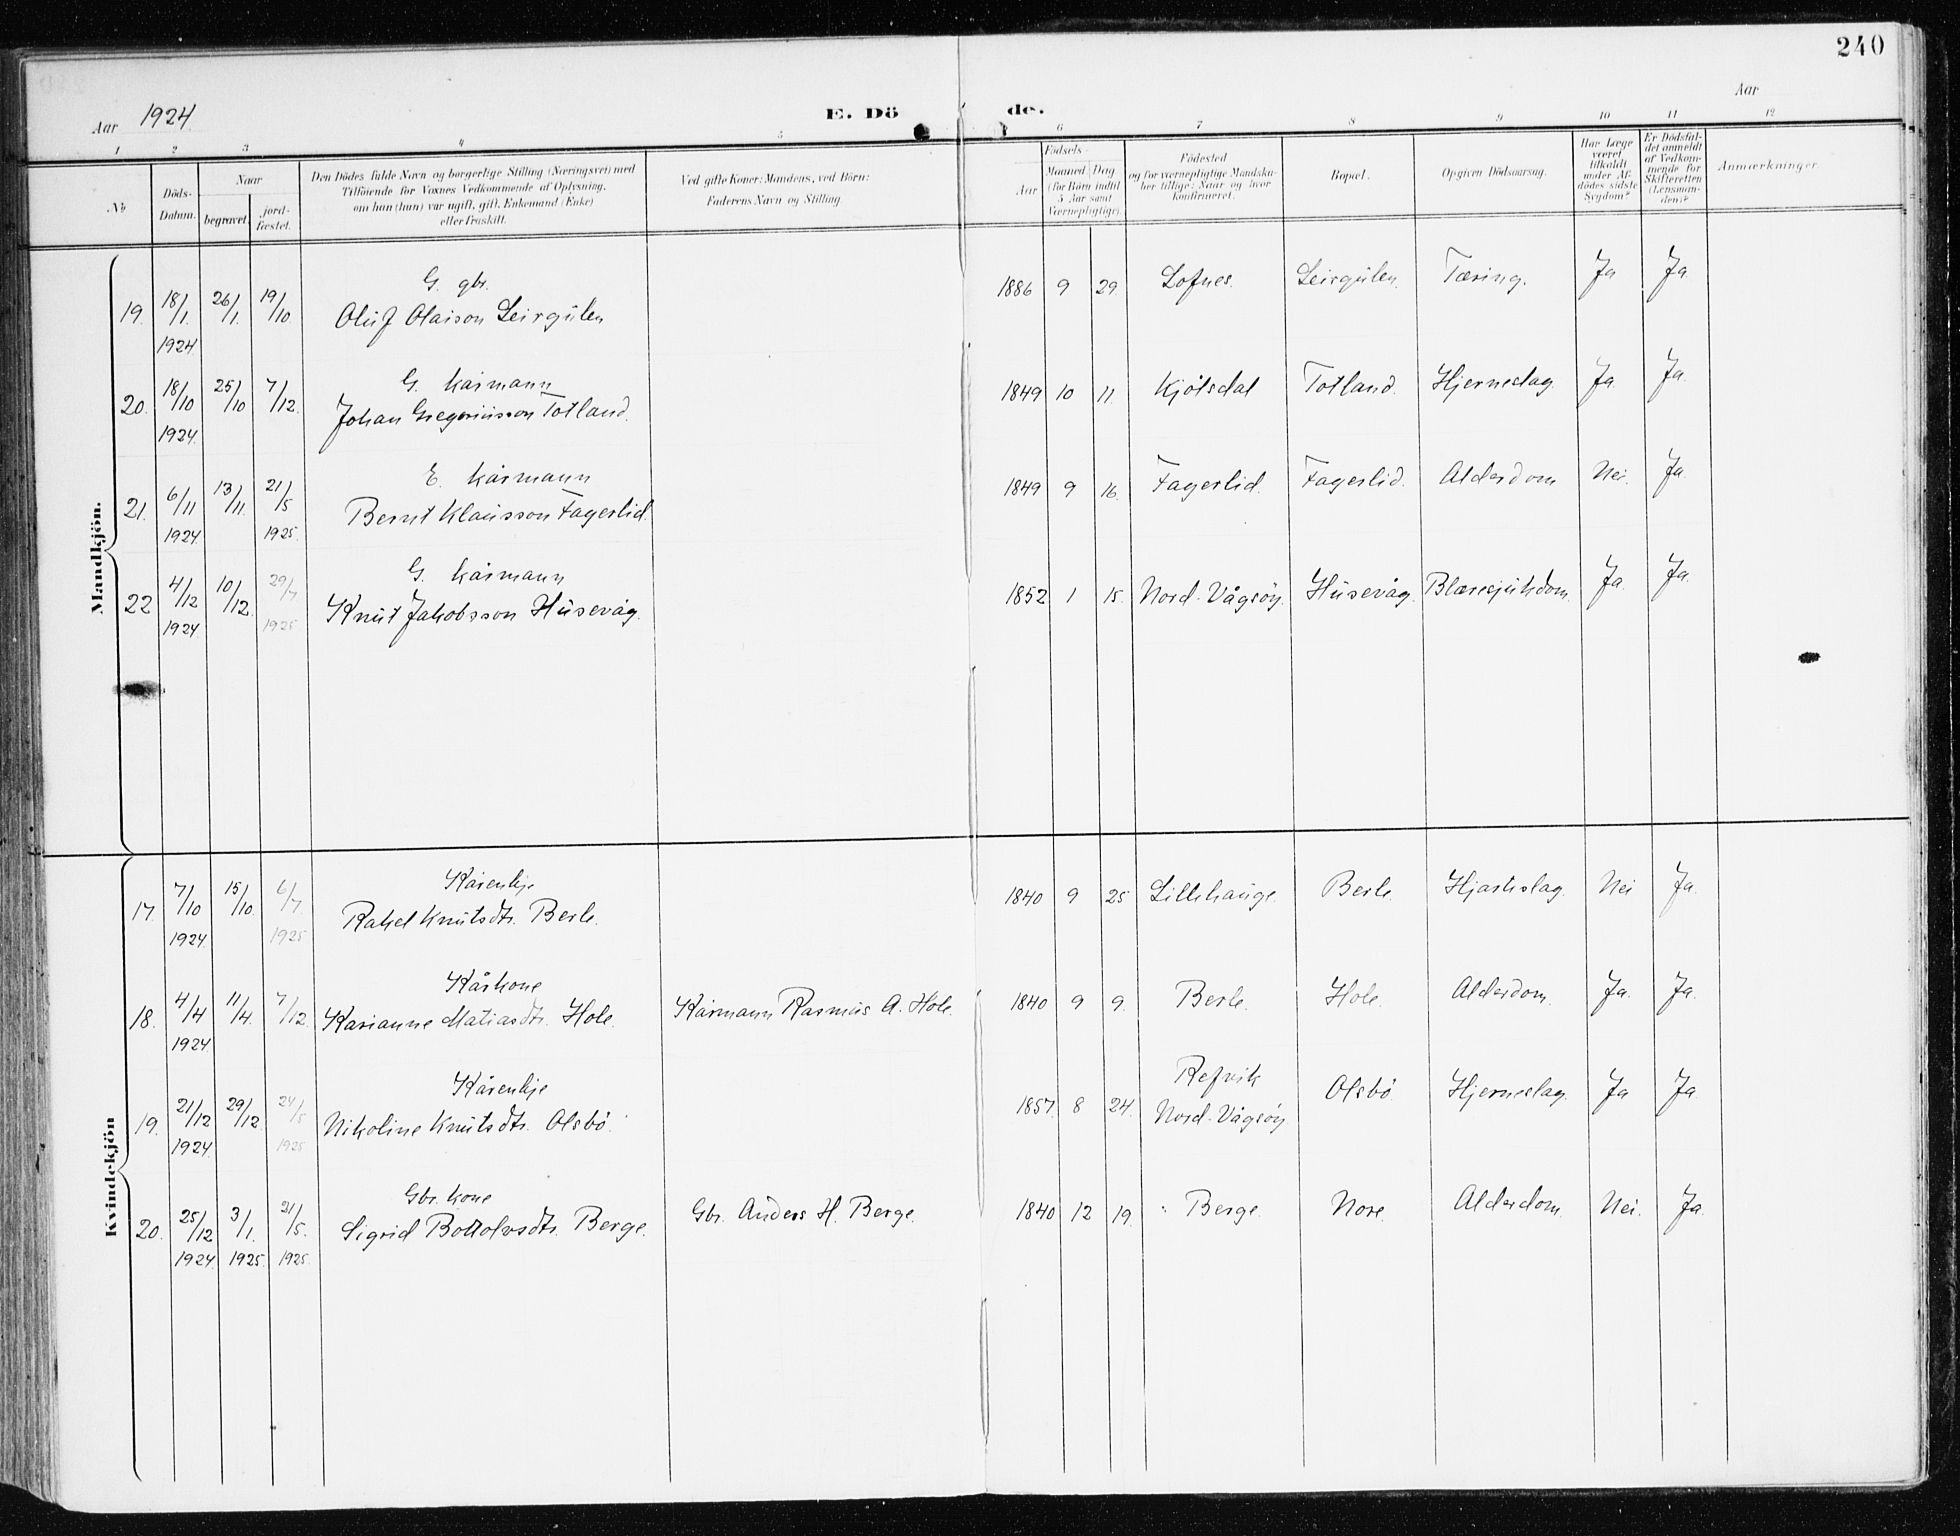 240
Aar 1924.
E. Dö de.
Aar
1 2 3 4 5 6 7 8 9 10 11 12
No
Döds-Datum.
Naar
begravet.
jord-fæstet.
Den Dödes fulde Navn og borgerlige Stilling (Næringsvei) med
Tilföiende for Voxnes Vedkommende af Oplysning,
om han (hun) var ugift, gift, Enkemand (Enke)
eller fraskilt.
Ved gifte Koner: Mandens, ved Börn:
Faderens Navn og Stilling.
Födsels-
Aar
Maaned Dag
(for Börn indtil
5 Aar samt
Værnepligtige).
Födested
og for værnepligtige Mandska-
ber tillige: Naar og hvor
konfirmeret.
Bopæl.
Opgiven Dödsaarsag.
Har Læge
været
tilkaldt
under Af-
dödes sidste
Sygdom?
Er Dödsfal-
det anmeldt
af Vedkom-
mende for
Skifteretten
(Lensman-
den)?
Anmærkninger.
Mandkjön.
G. gbr.
19. 18/1. 26/1. 19/10. Oluf Olaison Leirgulen 1886 9 29 Lofnes. Leirgulen. Tæring. Ja Ja
1924
G. kårmann
20. 18/10 25/10 7/12. Johan Gregoriusson Totland. 1849 10 11. Kjölsdal Totland. Hjerneslag. Ja Ja
1924.
E. kårmann
21. 6/11 13/11. 21/5 Bernt Klausson Fagerlid. 1849 9 16. Fagerlid. Fagerlid. Alderdom Nei. Ja
1924 1925.
G. kårmann
22 4/12 10/12. 29/7 Knut Jakobsson Husevåg. 1852 1 15. Nord-Vågsöy. Husevåg. Blæresjukdom. Ja Ja
1924 1925
Kvindekjön
Kårenkje
17. 7/10 15/10. 6/7 Rakel Knutsdtr. Berle. 1840 9 25 Lillehauge. Berle. Hjarteslag. Nei Ja
1924. 1925
Kårkone
18. 4/4 11/4. 7/12. Karianne Matiasdtr. Hole. Kårmann Rasmus A. Hole. 1840 9 9. Berle. Hole. Alderdom. Ja Ja
1924.
Kårenkje
19. 21/12 29/12 24/5 Nikoline Knutsdtr. Olsbö. 1857. 8 24. Refvik Nord-Vågsöy Olsbö Hjerneslag. Ja Ja
1924. 1925
Gbr. kone
20. 25/12 3/1. 21/5. Sigrid Bottolvsdtr. Berge. Gbr. Anders H. Berge. 1840 12 19. Berge. Nore. Alderdom. Nei. Ja
1924. 1925. 1925.